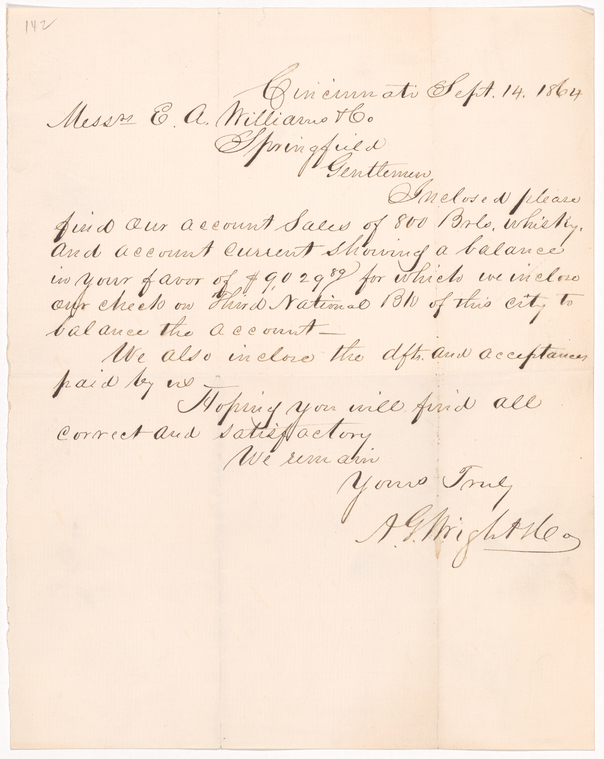 142
Cincinnati Sept. 14. 1864
Messrs E. A. Williams & Co
Springfield
Gentlemen
Inclosed please
find our account Sales of 800 Brls. whisky.
and account current showing a balance
in your favor of $9,029 89/ for which we inclose
our check on Third National Bk of this city to
balance the account —
We also inclose the dfts. and acceptances
paid by us
Hoping you will find all
correct and satisfactory
We remain
Yours Truly
A. G. Wright & Co